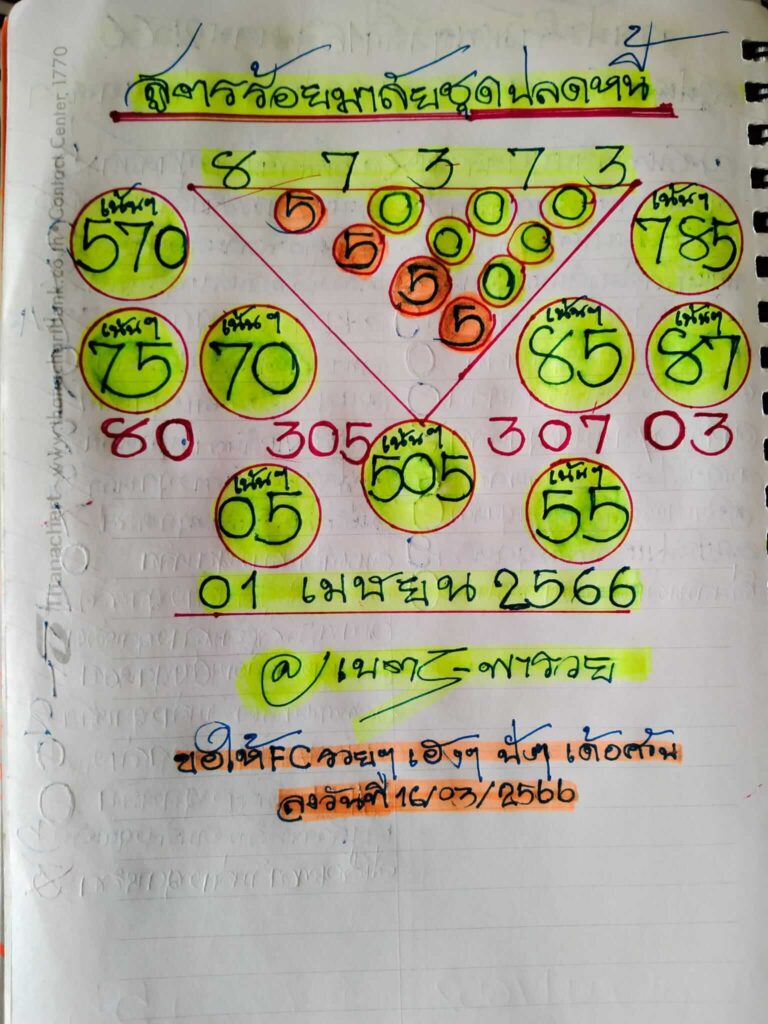 สูตรร้อยมาลัยชุดปลดหนี้
8 7 3 7 3
5 0 0 0
5 0 0
5 0
5
เน้นๆ 570
เน้นๆ 785
เน้นๆ 75
เน้นๆ 70
เน้นๆ 85
เน้นๆ 87
80 305 307 03
เน้นๆ 505
เน้นๆ 05
เน้นๆ 55
01 เมษายน 2566
พารวย
ขอให้ FC รวยๆ เฮงๆ ปังๆ เด้อค่ะ
ลงวันที่ 16/03/2566
thanachart www.thanachartbank.co.th Contact Center 1770